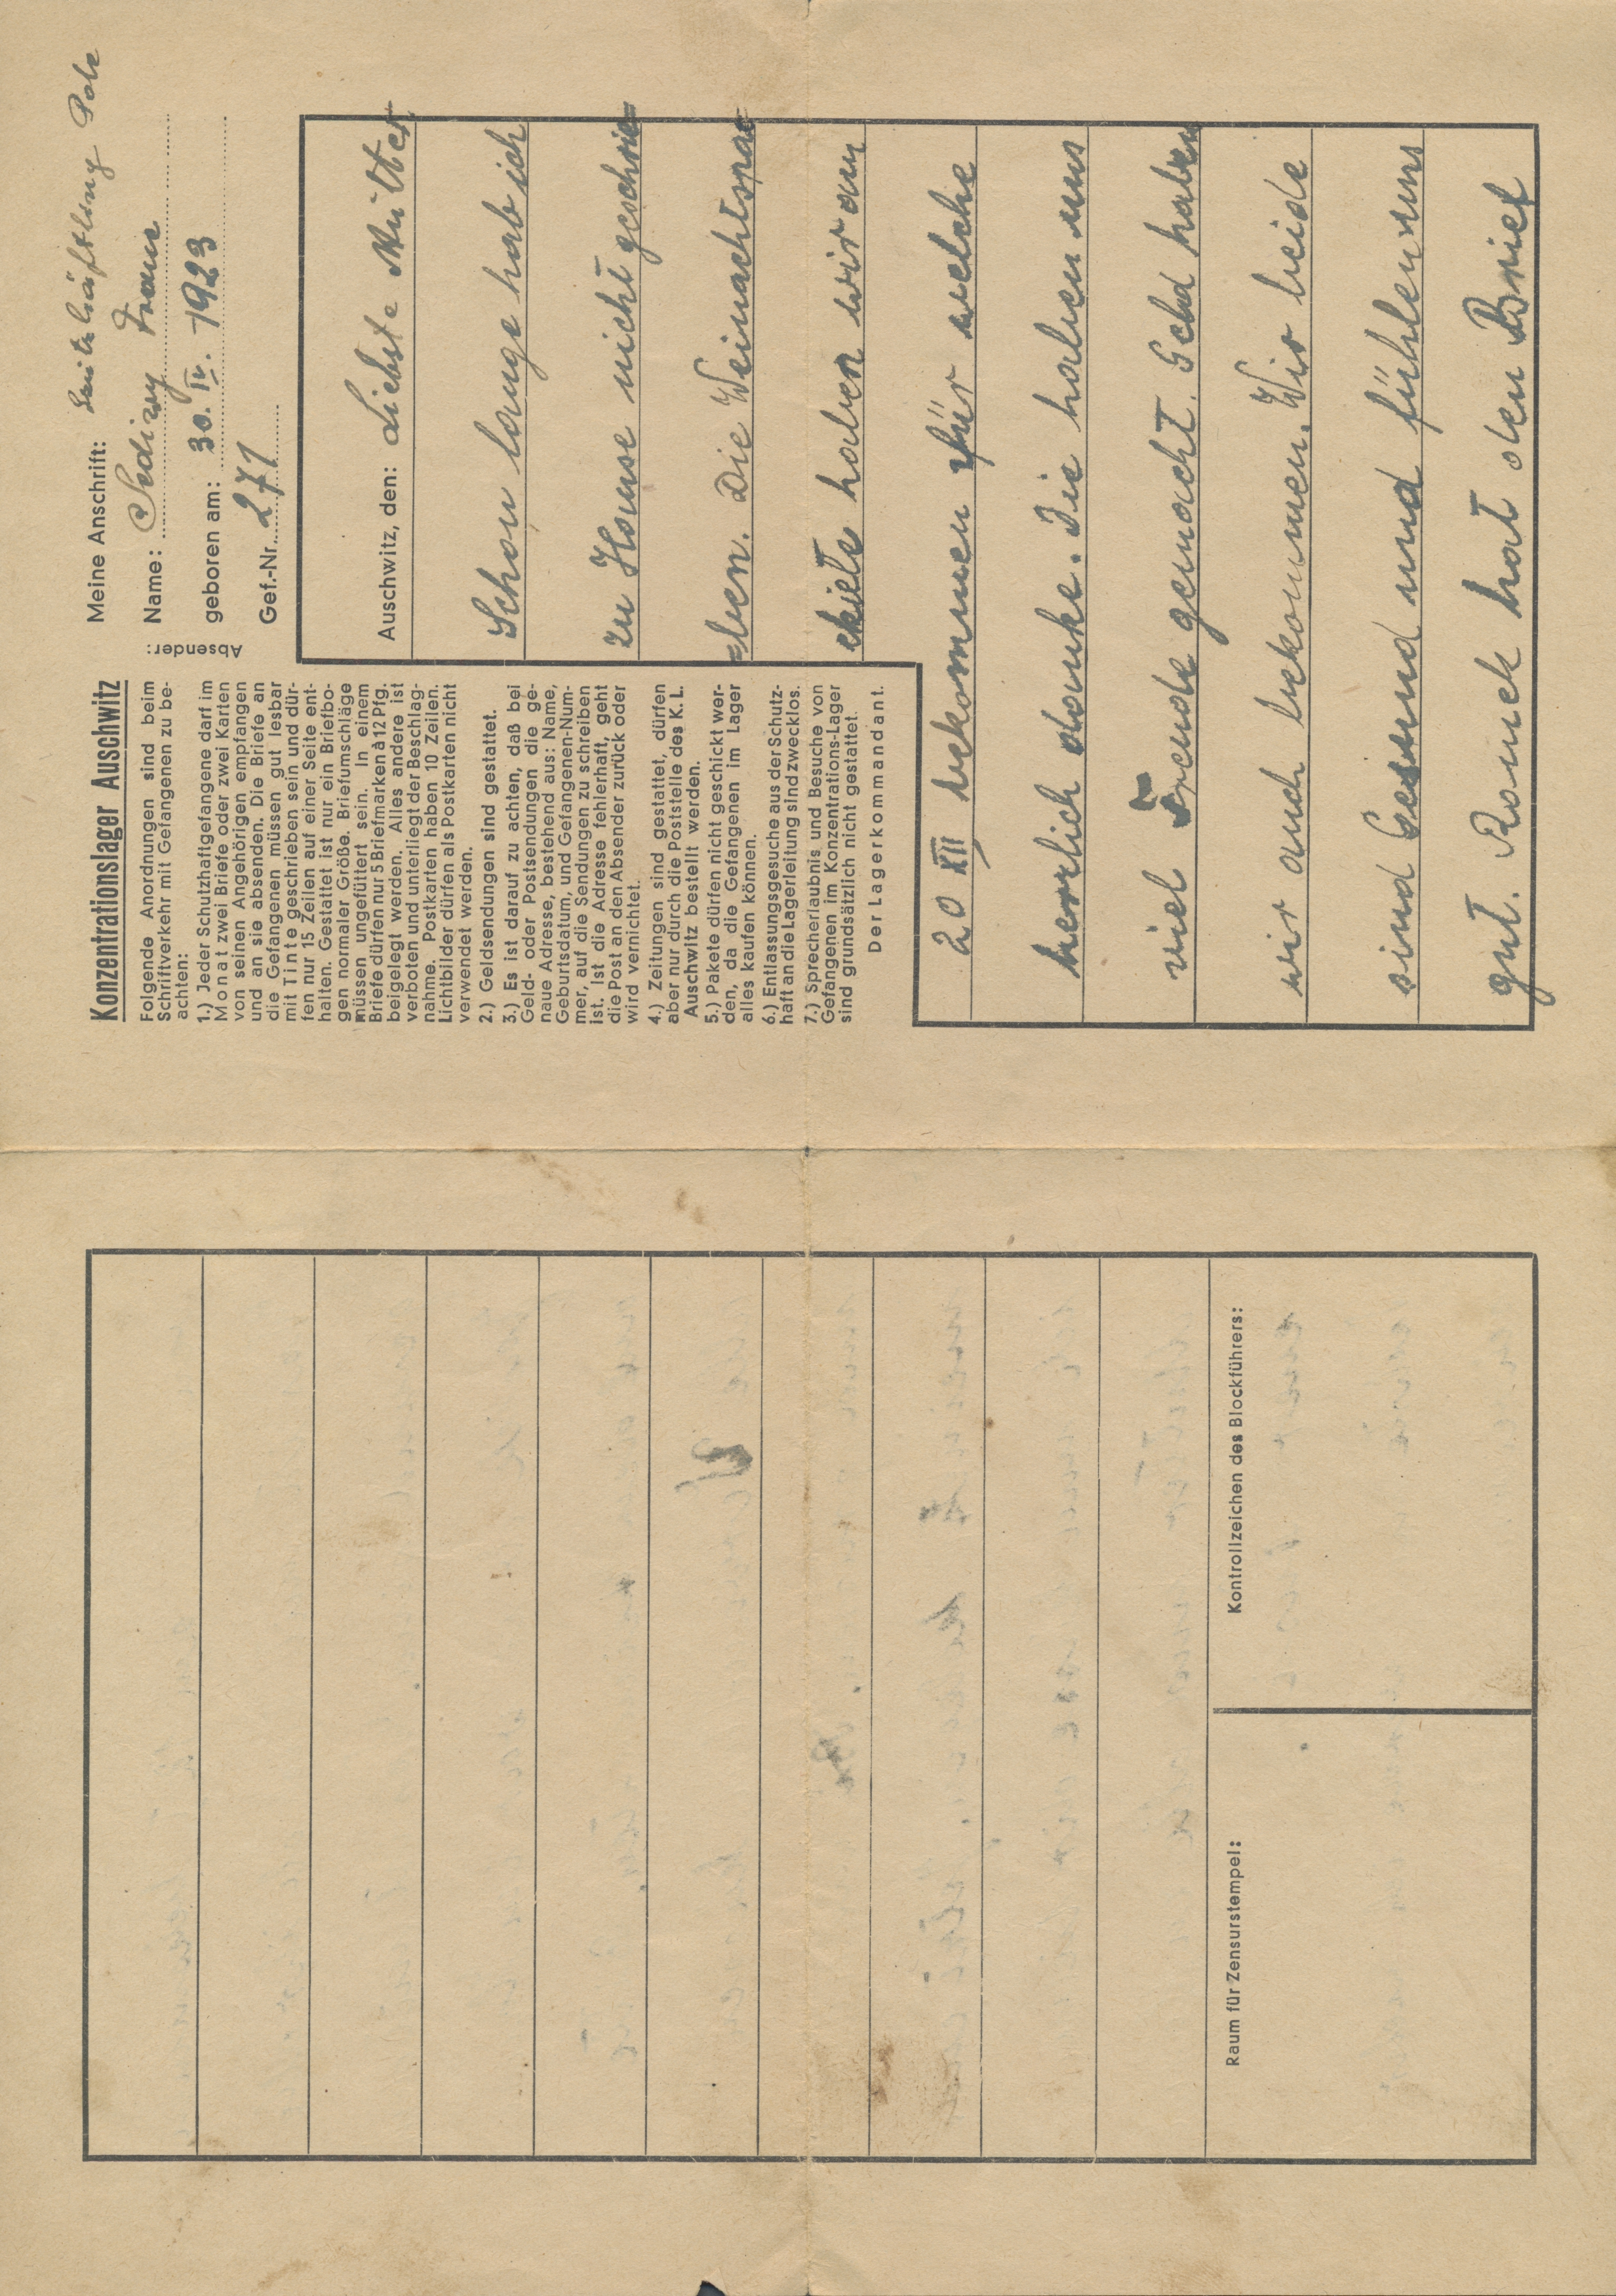 Konzentrationslager Auschwitz
Folgende Anordnungen sind beim
Schriftverkehr mit Gefangenen zu be-
achten:
1.) Jeder Schutzhaftgefangene darf im
Monat zwei Briefe oder zwei Karten
von seinen Angehörigen empfangen
und an sie absenden. Die Briefe an
die Gefangenen müssen gut lesbar
mit Tinte geschrieben sein und dür-
fen nur 15 Zeilen auf einer Seite ent-
halten. Gestattet ist nur ein Briefbo-
gen normaler Größe. Briefumschläge
müssen ungefüttert sein. In einem
Briefe dürfen nur 5 Briefmarken à 12 Pfg.
beigelegt werden. Alles andere ist
verboten und unterliegt der Beschlag-
nahme. Postkarten haben 10 Zeilen.
Lichtbilder dürfen als Postkarten nicht
verwendet werden.
2.) Geldsendungen sind gestattet.
3.) Es ist darauf zu achten, daß bei
Geld- oder Postsendungen die ge-
naue Adresse, bestehend aus: Name,
Geburtsdatum, und Gefangenen-Num-
mer, auf die Sendungen zu schreiben
ist. Ist die Adresse fehlerhaft, geht
die Post an den Absender zurück oder
wird vernichtet.
4.) Zeitungen sind gestattet, dürfen
aber nur durch die Poststelle des K. L.
Auschwitz bestellt werden.
5.) Pakete dürfen nicht geschickt wer-
den, da die Gefangenen im Lager
alles kaufen können.
6.) Entlassungsgesuche aus der Schutz-
haft an die Lagerleitung sind zwecklos.
7.) Sprecherlaubnis und Besuche von
Gefangenen im Konzentrations-Lager
sind grundsätzlich nicht gestattet.
Der Lagerkommandant.
Absender:
Meine Anschrift: Schutzhäftling Pole
Name: Sedivy Franc
geboren am: 30. IV. 1923
Gef.-Nr. 271
Auschwitz, den: Liebste Mutter
Schon lange hab ich
zu Hause nicht geschrie=
=ben. Die Weinachtspa=
ckiete haben wir am
20 XII bekommen für welche
herrlich danke. Die haben uns
viel Freude gemacht. Geld haben
wir auch bekommen. Wir beide
sind Gesund und fühlen uns
gut. Romek hat den Brief
Kontrollzeichen des Blockführers:
Raum für Zensurstempel: